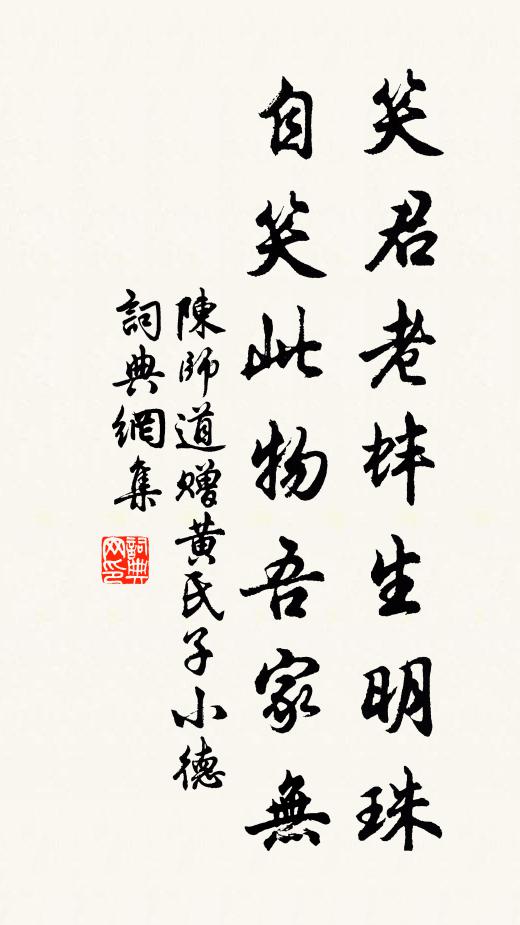 笑君老蚌生明珠
自笑此物吾家無
陳師道贈黄氏子小德
詞典網集
詞典網印